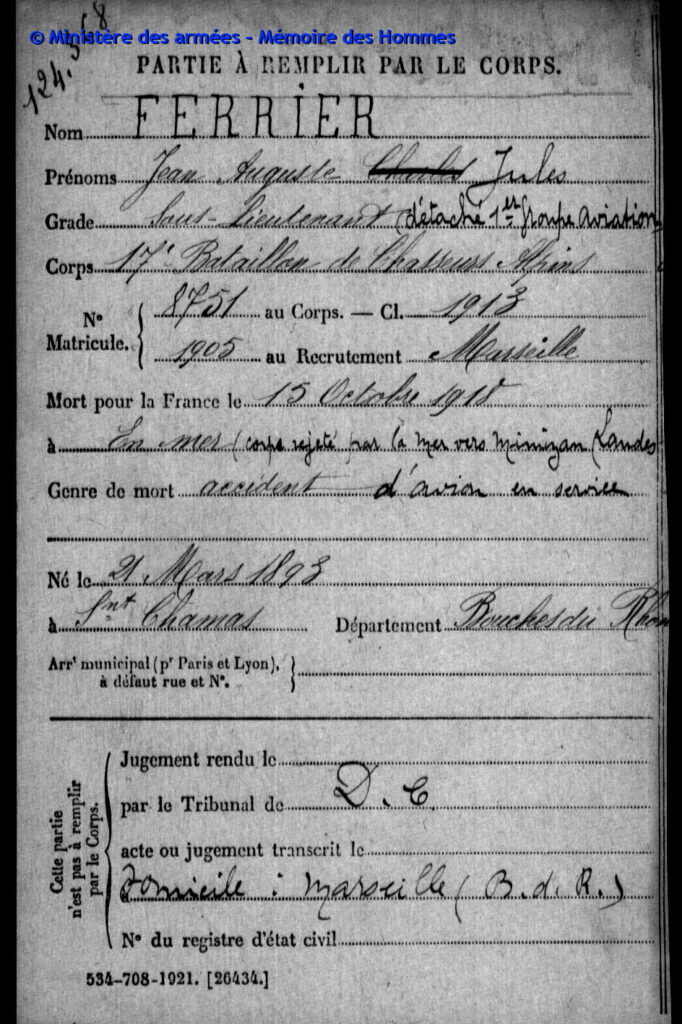 © Ministère des armées - Mémoire des Hommes
124.568
PARTIE À REMPLIR PAR LE CORPS.
Nom FERRIER
Prénoms Jean Auguste Charles Jules
Grade Sous-Lieutenant (détaché 1er Groupe aviation
Corps 17e Bataillon de Chasseurs Alpins
N° Matricule. { 8751 au Corps. — Cl. 1913
1905 au Recrutement Marseille
Mort pour la France le 15 Octobre 1918
à En mer (corps rejeté par la mer vers Mimizan (Landes
Genre de mort accident d'avion en service
Né le 21 Mars 1893
à Snt Chamas Département Bouches du Rhon
Arrt municipal (pr Paris et Lyon),
à défaut rue et N°.
Cette partie n'est pas à remplir par le Corps.
Jugement rendu le
par le Tribunal de D. C
acte ou jugement transcrit le
Domicile : Marseille (B. d. R.)
N° du registre d'état civil
534-708-1921. [26434.]